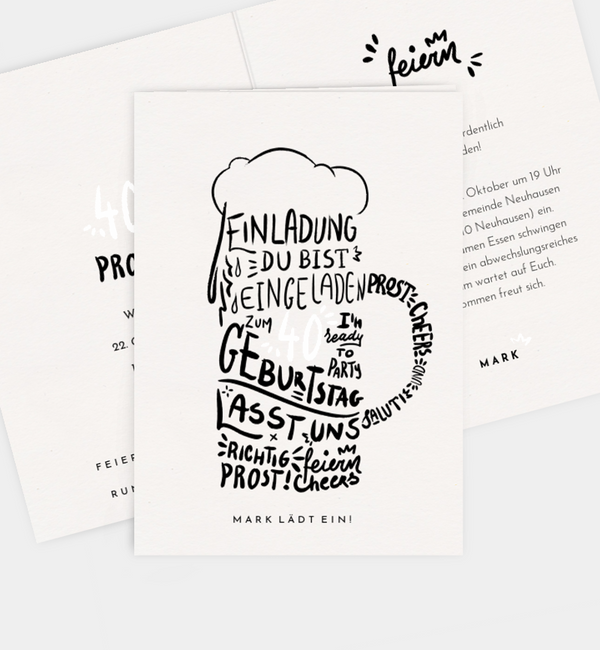 EINLADUNG
DU BIST
EINGELADEN
ZUM 40 I'm
ready
TO
PARTY
GEBURTSTAG
LASST UNS
RICHTIG feiern
PROST! Cheers
PROST CHEERS UND SALUT!
MARK LÄDT EIN!
40
PRO
22.
FEIER
RUN
feiern
rdentlich
den!
Oktober um 19 Uhr
emeinde Neuhausen
0 Neuhausen) ein.
men Essen schwingen
ein abwechslungsreiches
m wartet auf Euch.
ommen freut sich.
MARK